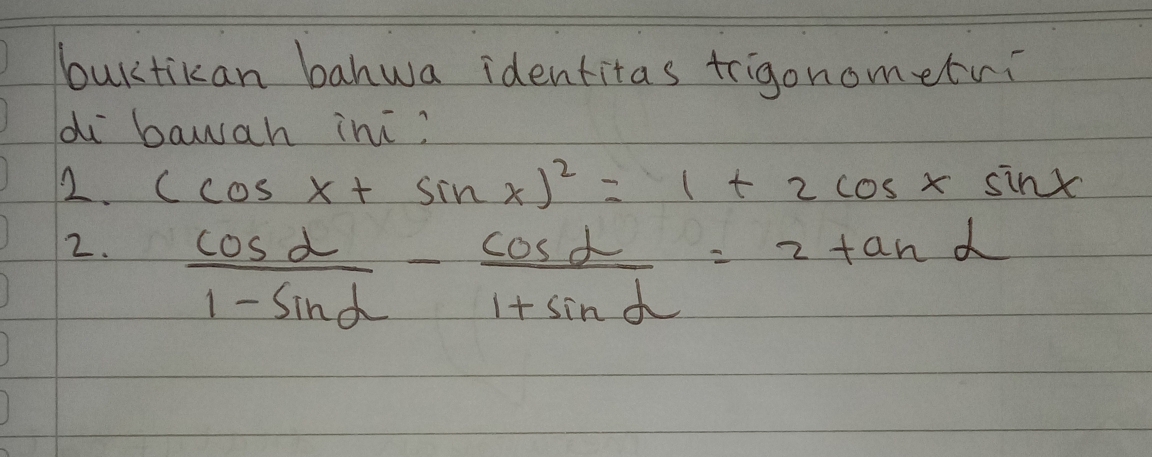 buktikan bahwa identitas trigonometri
di bawah ini :
1. (cos x + sin x)² = 1 + 2 cos x sin x
2. cos α / 1 - sin α - cos α / 1 + sin α = 2 tan α